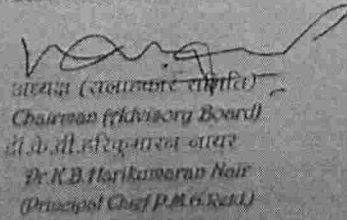 अध्यक्ष (सलाहकार समिति)
Chairman (Advisory Board)
डॉ.के.बी.हरिकुमारन नायर
Dr.K.B.Harikumaran Nair
(Principal Chief P.M.G.Retd.)